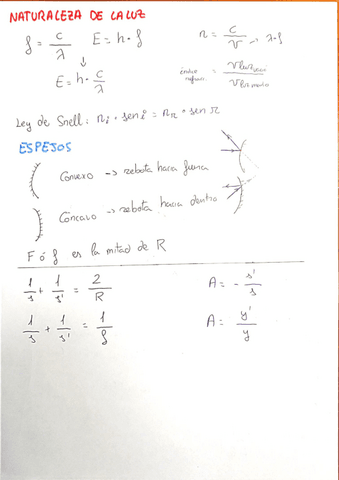 NATURALEZA DE LA LUZ
f = c/λ   E = h · f   n = c/v → λ·f
↓
E = h · c/λ   índice refrac. = v luz vacío / v luz medio
Ley de Snell: ni · sen i = nr · sen r
ESPEJOS
Convexo → rebota hacia fuera
Cóncavo → rebota hacia dentro
F ó f es la mitad de R
1/s + 1/s' = 2/R   A = - s'/s
1/s + 1/s' = 1/f   A = y'/y